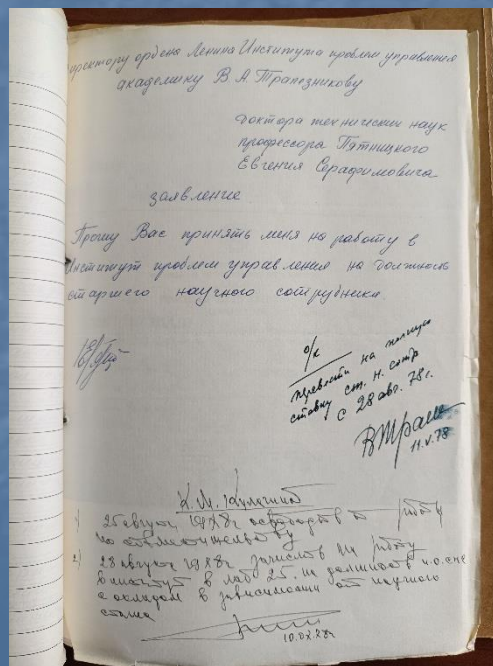 Директору ордена Ленина Института проблем управления
академику В.А. Трапезникову
доктора технических наук
профессора Пятницкого
Евгения Серафимовича
заявление.
Прошу Вас принять меня на работу в
Институт проблем управления на должность
старшего научного сотрудника.
о/к
перевести на полную
ставку ст. н. сотр
с 28 авг. 78 г.
11.V.78
К.М.
1) 25 августа 1978г освободить от работы
по совместительству
2) 28 августа 1978г зачислить на работу
в институт в лаб 25. на должность
с окладом в зависимости от научного
стажа